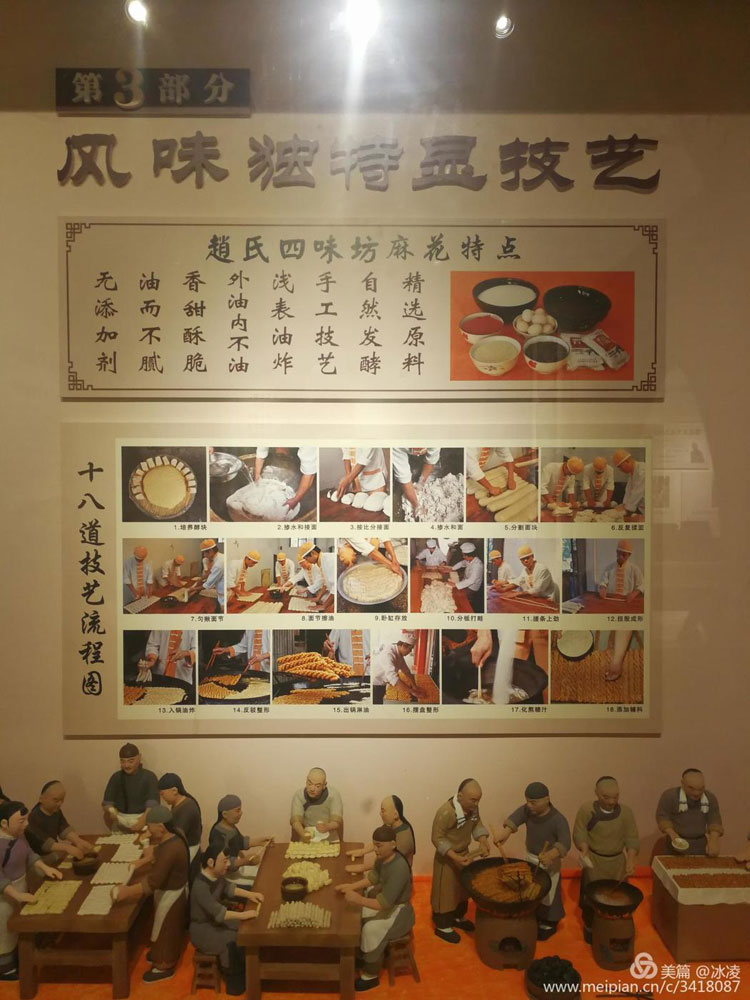 第3部分
风味独特显技艺
趙氏四味坊麻花特点
精选原料
自然发酵
手工技艺
浅表油炸
外油内不油
香甜酥脆
油而不腻
无添加剂
十八道技艺流程图
1.培养酵块
2.掺水和接面
3.按比分接面
4.掺水和面
5.分割面块
6.反复揉面
7.匀揪面节
8.面节擦油
9.卧缸存放
10.分板打粗
11.搓条上劲
12.捏股成形
13.入锅油炸
14.反驳整形
15.出锅淋油
16.摆盘整形
17.化熬糖汁
18.添加辅料
美篇 @冰凌
www.meipian.cn/c/3418087